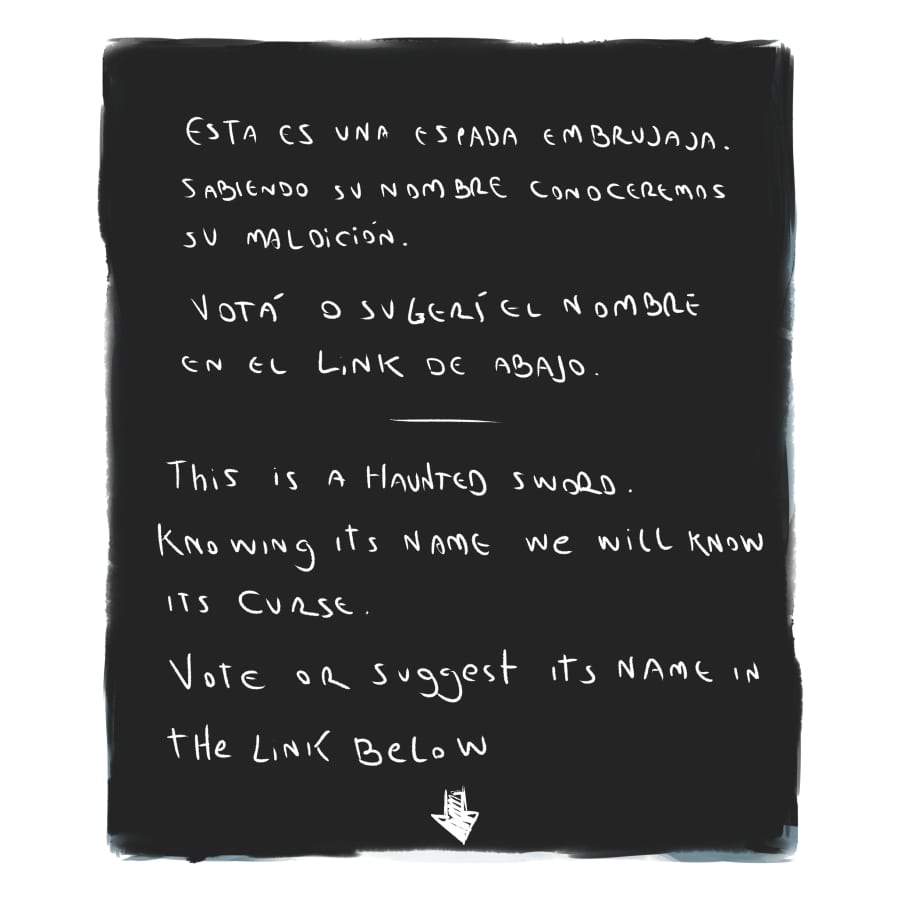 ESTA ES UNA ESPADA EMBRUJAJA.
SABIENDO SU NOMBRE CONOCEREMOS
SU MALDiCiÓN.
VOTÁ O SUGERÍ EL NOMBRE
EN EL LiNK DE ABAJO.
This is A HAUNTED SWORD.
KNOWING iTS NAME we will KNOW
ITS CURSE.
VOTE OR suggest iTS NAME IN
tHe LINK BELOW